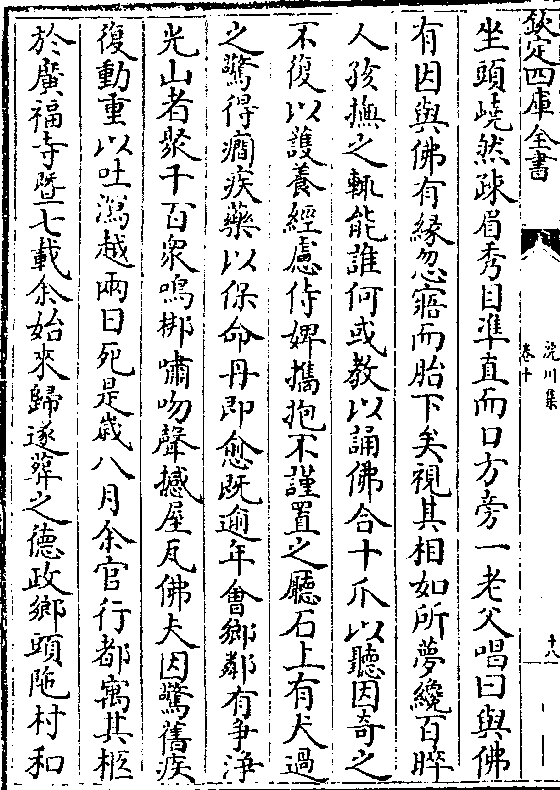 欽定四庫全書
浣川集
卷十
十八
坐頭峣然疎眉秀目準直而口方旁一老父唱曰與佛
有因與佛有緣忽寤而胎下矣視其相如所夢纔百晬
人孩撫之輒能誰何或教以誦佛合十爪以聽因奇之
不復以護養經慮侍婢攜抱不謹置之廳石上有犬過
之驚得癎疾藥以保命丹即愈既逾年會鄉鄰有爭浄
光山者聚千百衆鳴梆嘯吻聲撼屋瓦佛夫因驚舊疾
復動重以吐瀉越兩日死是歲八月余官行都寓其柩
於廣福寺暨七載余始來歸遂葬之德政鄉頭陁村和